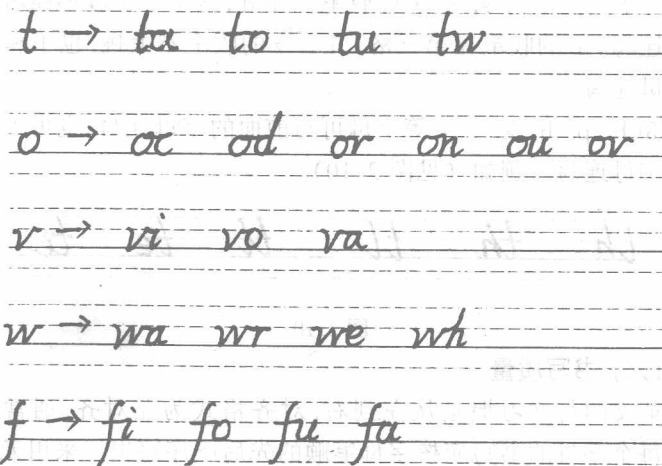 t → ta to tu tw
o → oc od or on ou ov
v → vi vo va
w → wa wr we wh
f → fi fo fu fa